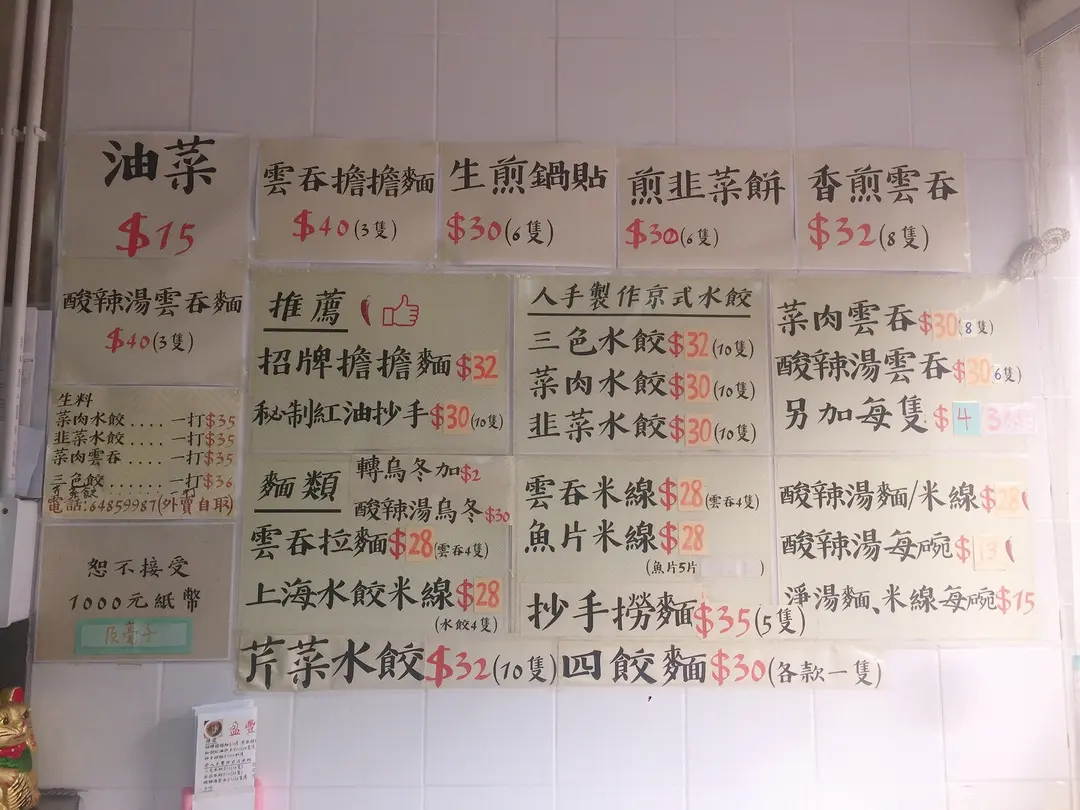 油菜
$15
雲吞擔擔麵
$40(3隻)
生煎鍋貼
$30(6隻)
煎韭菜餅
$30(6隻)
香煎雲吞
$32(8隻)
酸辣湯雲吞麵
$40(3隻)
推薦
招牌擔擔麵$32
秘制紅油抄手$30(10隻)
人手製作京式水餃
三色水餃$32(10隻)
菜肉水餃$30(10隻)
韭菜水餃$30(10隻)
菜肉雲吞$30(8隻)
酸辣湯雲吞$30(6隻)
另加每隻$4
生料
菜肉水餃....一打$35
韭菜水餃....一打$35
菜肉雲吞....一打$35
三色餃.....一打$36
電話:64859987(外賣自取)
麵類
轉烏冬加$2
酸辣湯烏冬$30
雲吞拉麵$28(雲吞4隻)
上海水餃米線$28
(水餃4隻)
雲吞米線$28(雲吞4隻)
魚片米線$28
(魚片5片)
抄手撈麵$35(5隻)
酸辣湯麵/米線$28
酸辣湯每碗$13
淨湯麵、米線每碗$15
恕不接受
1000元紙幣
芹菜水餃$32(10隻)
四餃麵$30(各款一隻)
盈豐